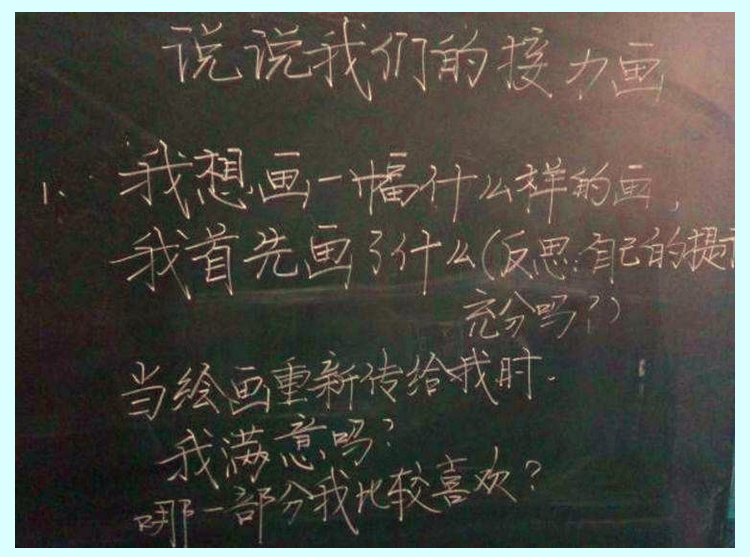 说说我们的接力画
1、我想画一幅什么样的画,
我首先画了什么(反思:自己的提
充分吗?)
当绘画重新传给我时.
我满意吗?
哪一部分我比较喜欢?